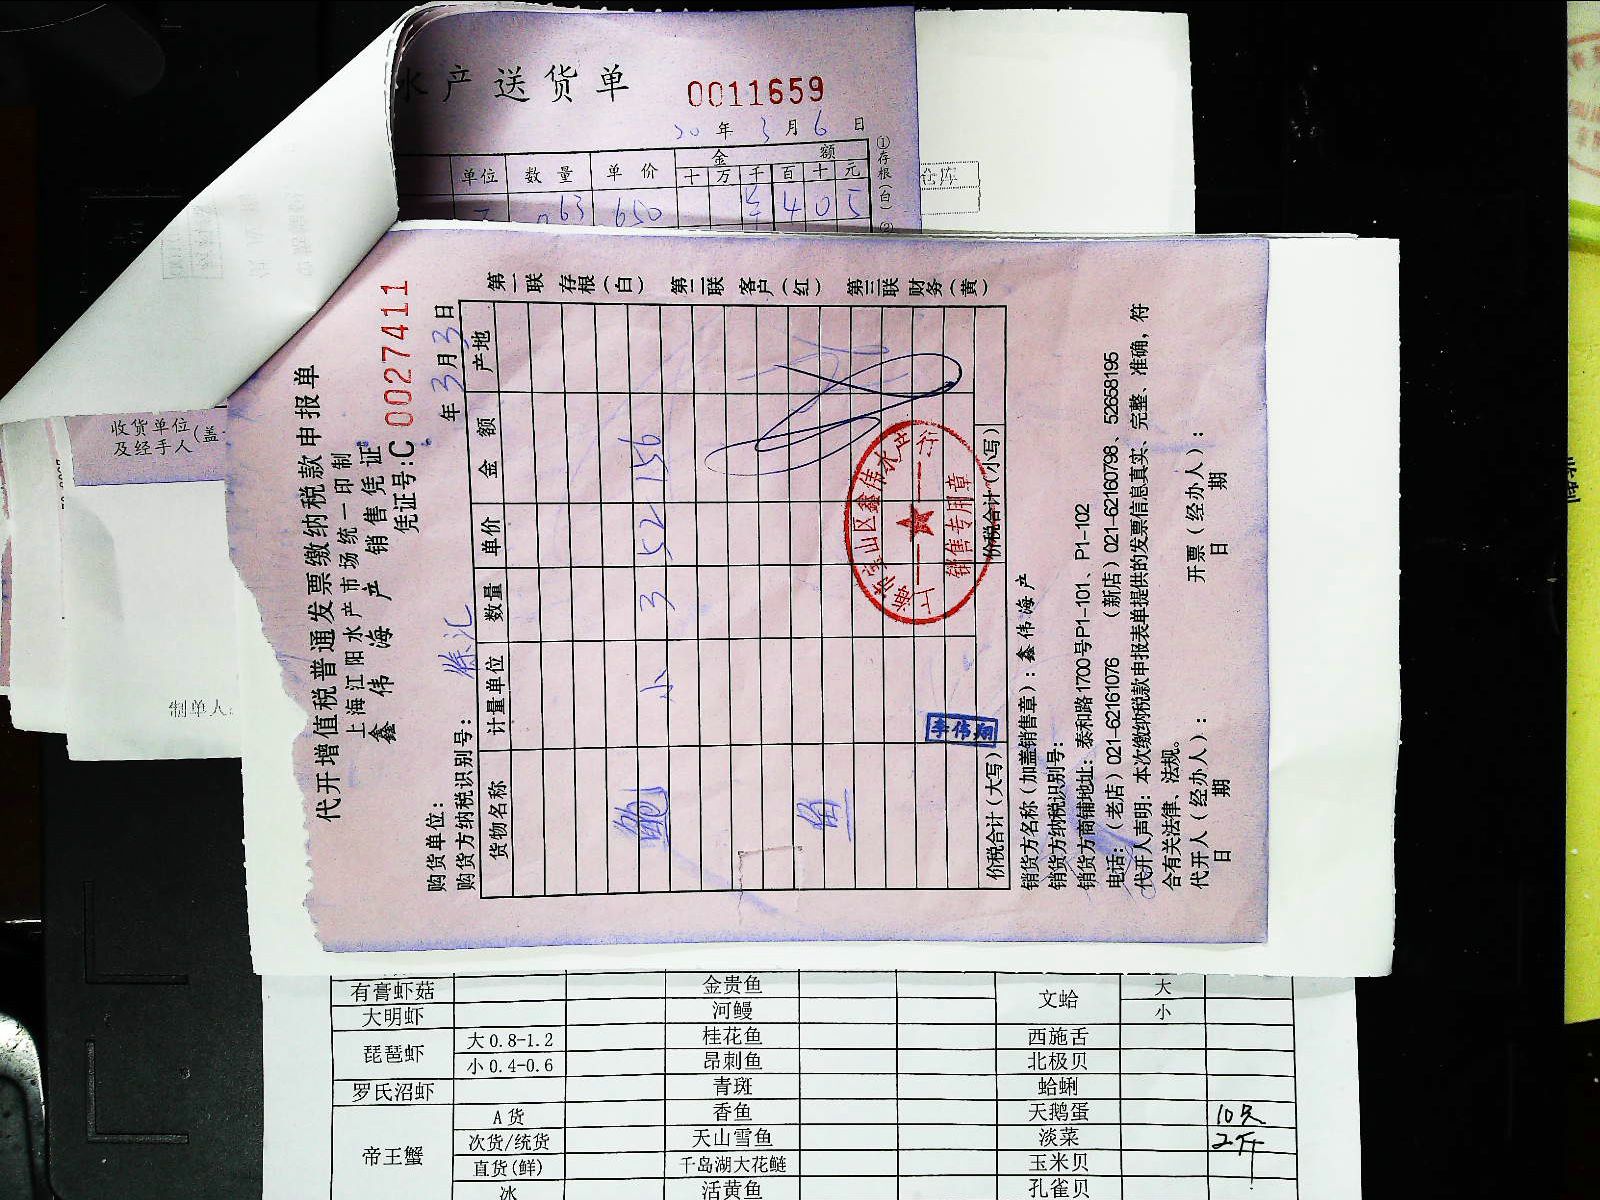 水产送货单
0011659
20年3月6日
金 额
单位 数量 单价 十 万 千 百 十 元
63 650 4 0 5
①存根(白)②
仓库
收货单位
及经手人(盖
制单人:
代开增值税普通发票缴纳税款申报单
上海江阳水产市场统一印制
鑫伟海产 销售凭证
凭证号:C 0027411
年3月3日
购货单位: 徐汇
购货方纳税识别号:
货物名称 计量单位 数量 单价 金额 产地
鲍 小 3 52 156
第一联 存根(白) 第二联 客户(红) 第三联 财务(黄)
价税合计(大写) 价税合计(小写)
李伟翔
上海市宝山区鑫伟水产行
销售专用章
销货方名称(加盖销售章):鑫伟海产
销货方纳税识别号:
销货方商铺地址:泰和路1700号P1-101、P1-102
电话:(老店)021-62161076 (新店)021-62160798、52658195
代开人声明:本次缴纳税款申报表单提供的发票信息真实、完整、准确,符
合有关法律、法规。
代开人(经办人): 开票(经办人):
日 期 日 期
有膏虾菇 金贵鱼 文蛤 大
大明虾 河鳗 小
琵琶虾 大0.8-1.2 桂花鱼 西施舌
小0.4-0.6 昂刺鱼 北极贝
罗氏沼虾 青斑 蛤蜊
帝王蟹 A货 香鱼 天鹅蛋 10只
次货/统货 天山雪鱼 淡菜 2斤
直货(鲜) 千岛湖大花鲢 玉米贝
冰 活黄鱼 孔雀贝